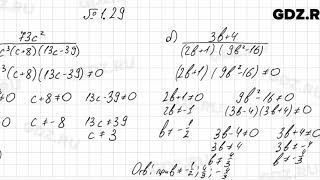 № 1.29
GDZ.RU
73c²
c³(c+8)(13c-39)
c³(c+8)(13c-39)≠0
≠0 c+8≠0 13c-39≠0
≠0 c≠-8 13c≠39
c≠3
б) 3b+4
(2b+1)(9b²-16)
(2b+1)(9b²-16)≠0
2b+1≠0 9b²-16≠0
2b≠-1 (3b-4)(3b+4)≠0
b≠-1/2 3b-4≠0 3b+4≠0
3b≠4 3b≠-4
b≠4/3 b≠-4/3
Отв: при b≠-1/2; 4/3; -4/3